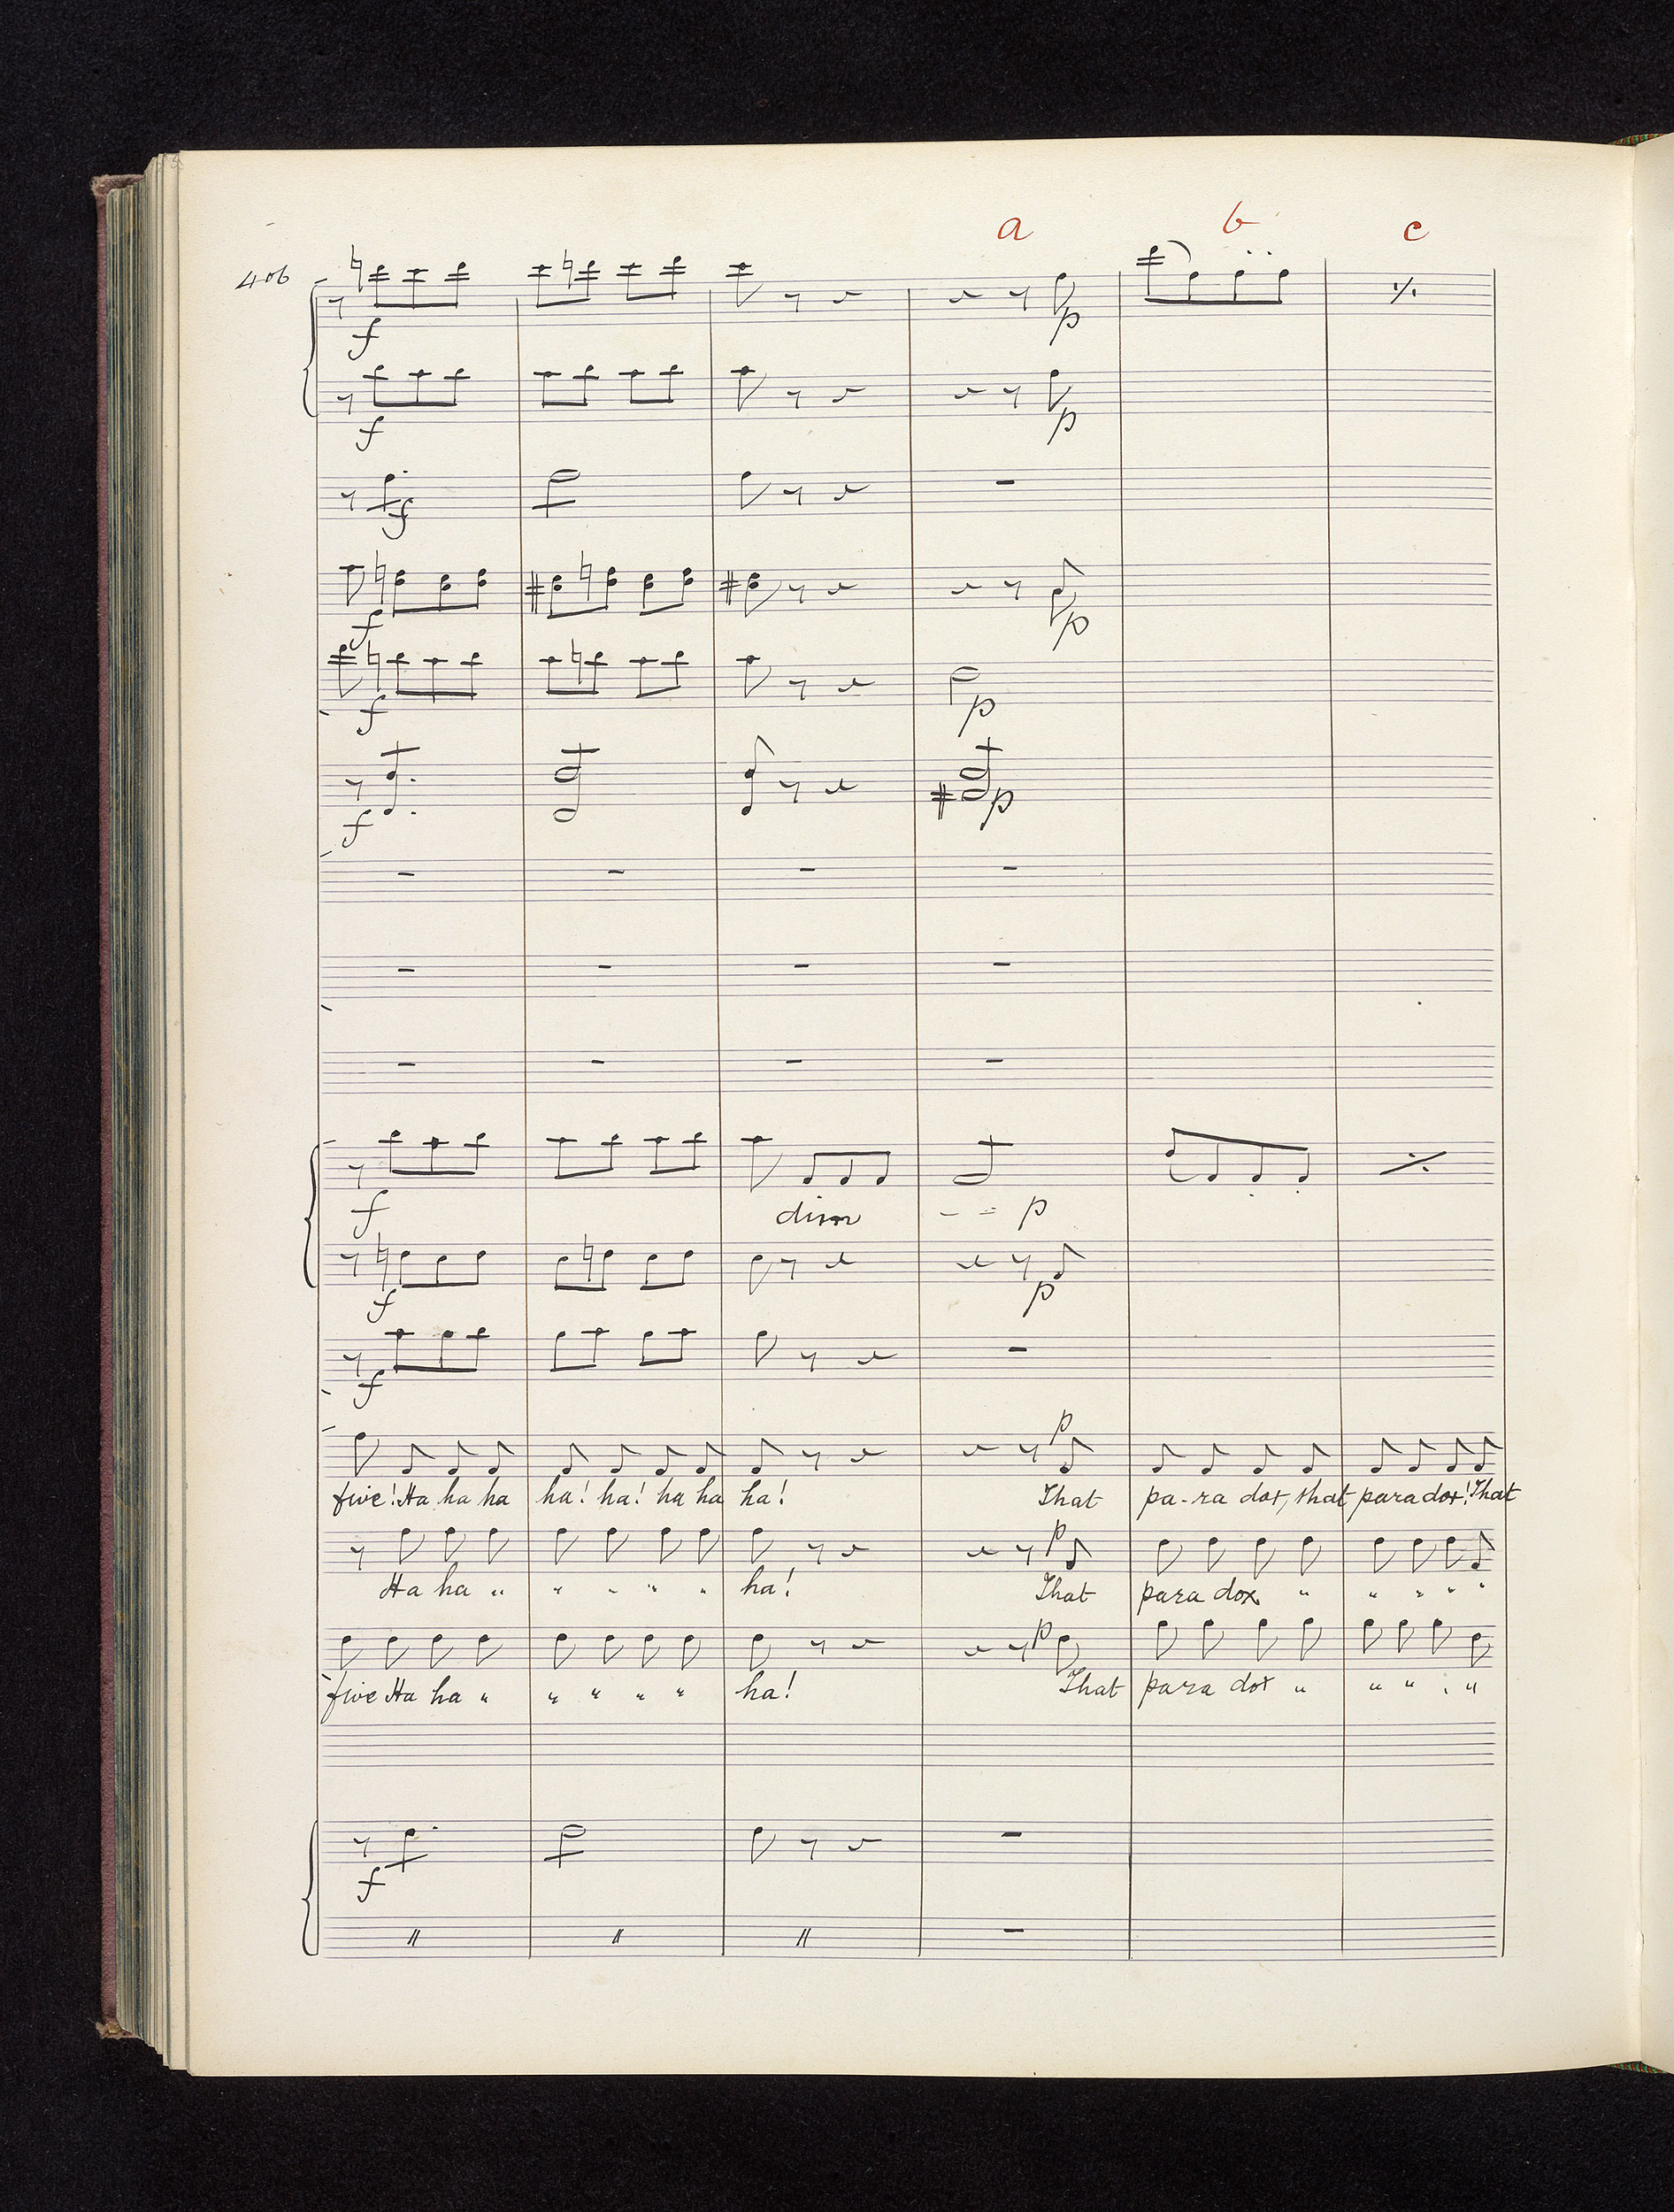 a b c
406
f
p
f
p
f
f
p
f
p
f
p
f
dim - - p
f
p
f
p
five! Ha ha ha ha! ha! ha ha ha! That pa-ra dox, that paradox! That
p
Ha ha " " " " " ha! That para dox " " " " "
p
five Ha ha " " " " " ha! That para dox " " " " "
f